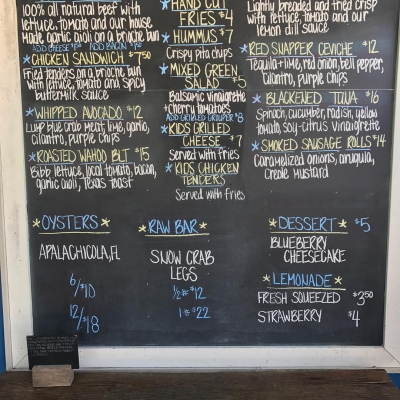 100% all natural beef with
lettuce, tomato and our house
made garlic aioli on a brioche bun
ADD CHEESE ADD BACON
*CHICKEN SANDWICH $7.50
Fried tenders on a brioche bun
with lettuce, tomato and spicy
buttermilk sauce
*WHIPPED AVOCADO $12
Lump blue crab meat, lime, garlic,
cilantro, purple chips
*ROASTED WAHOO BLT $15
Bibb lettuce, local tomato, bacon,
garlic aioli, Texas toast
*HAND CUT
FRIES $4
*HUMMUS $7
Crispy pita chips
*MIXED GREEN
SALAD $5
Balsamic vinaigrette
+cherry tomatoes
ADD GRILLED GROUPER $8
*KIDS GRILLED
CHEESE $7
Served with fries
*KIDS CHICKEN
TENDERS
Served with fries
Lightly breaded and fried crisp
with lettuce, tomato and our
lemon dill sauce
*RED SNAPPER CEVICHE $12
Tequila+lime, red onion, bell pepper,
cilantro, purple chips
*BLACKENED TUNA $16
Spinach, cucumber, radish, yellow
tomato, soy-citrus vinaigrette
*SMOKED SAUSAGE ROLLS $14
Caramelized onions, arugula,
Creole mustard
*OYSTERS*
APALACHICOLA, FL
6/$10
12/$18
*RAW BAR*
SNOW CRAB
LEGS
1/2# $12
1# $22
*DESSERT* $5
BLUEBERRY
CHEESECAKE
*LEMONADE*
FRESH SQUEEZED $3.50
STRAWBERRY $4